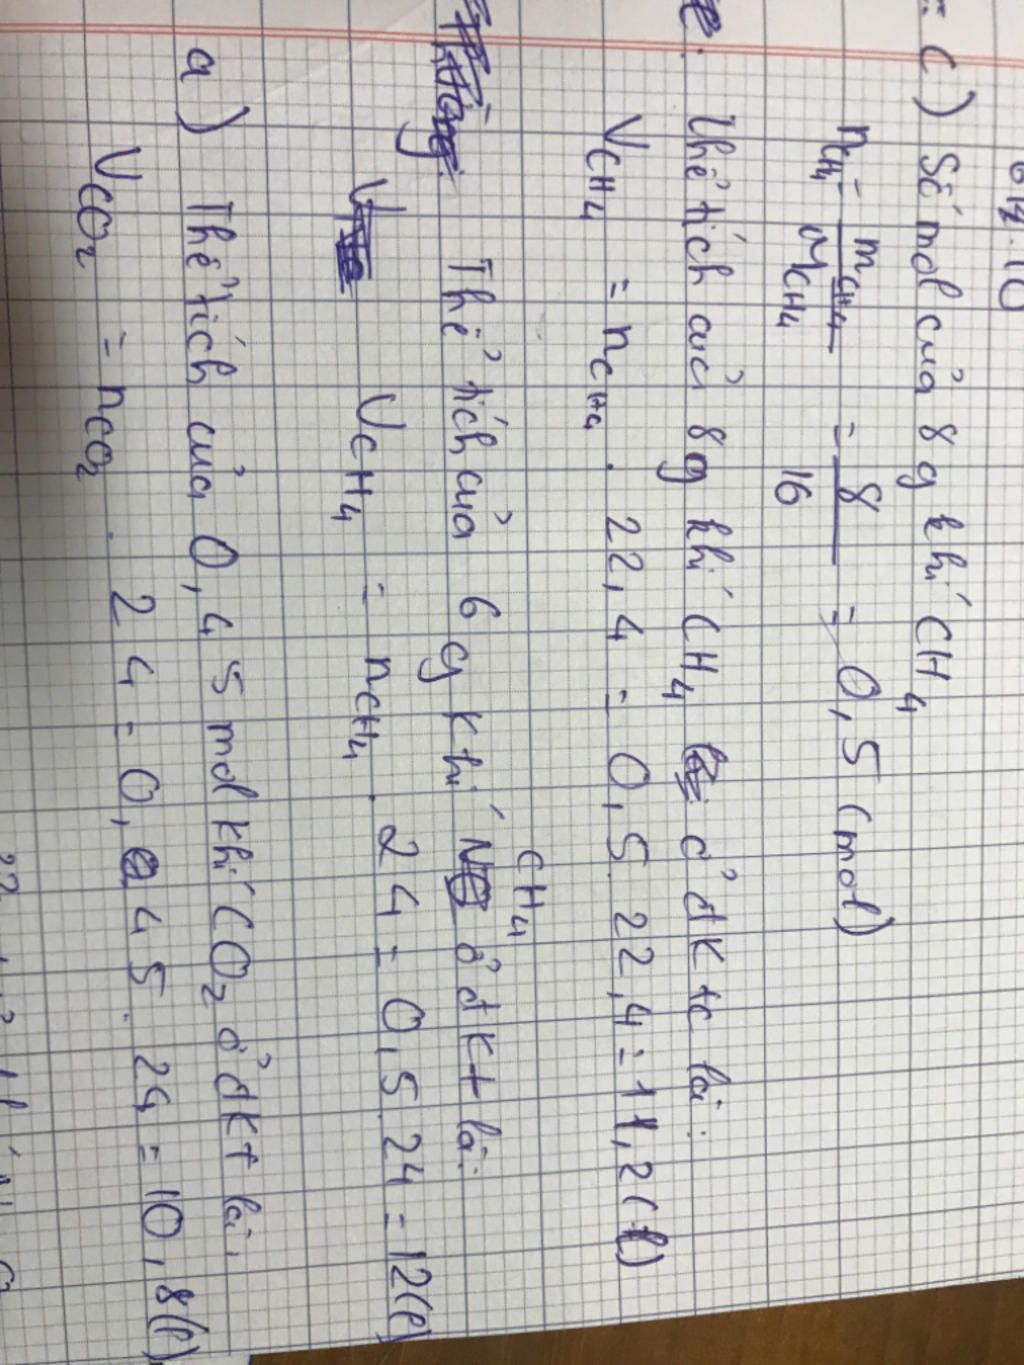 c) Số mol của 8g khí CH4
nCH4 = mCH4/MCH4 = 8/16 = 0,5 (mol)
Thể tích của 8g khí CH4 ở đktc là:
VCH4 = nCH4 . 22,4 = 0,5. 22,4 = 11,2 (l)
CH4
Thể tích của 6g khí ở đkt là:
VCH4 = nCH4 . 24 = 0,5. 24 = 12(l)
a) Thể tích của 0,45 mol khí CO2 ở đkt là:
VCO2 = nCO2 . 24 = 0,45. 24 = 10,8(l)